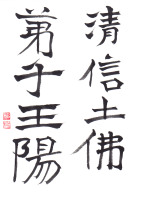 清信士佛
弟子王陽